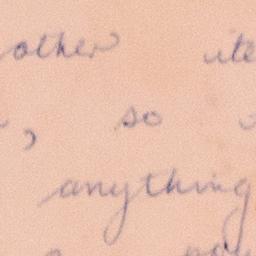 other ite
, so
anything